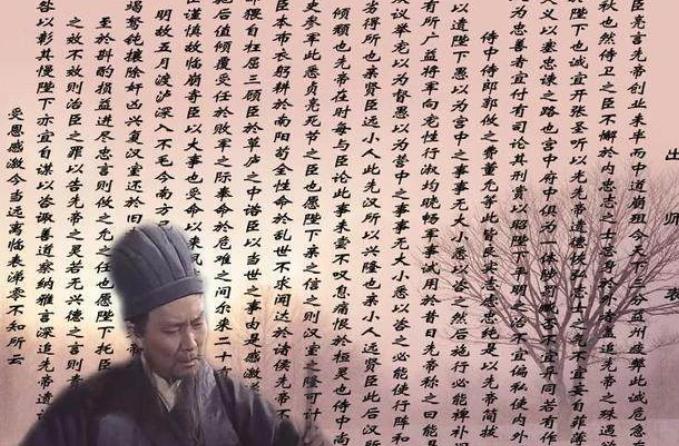 出师表
臣亮言先帝创业未半而中道崩殂今天下三分益州疲弊此诚危急
秋也然侍卫之臣不懈於内忠志之士忘身於外者盖追先帝之殊遇
於陛下也诚宜开张圣听以光先帝遗德恢弘志士之气不宜妄自菲薄
失义以塞忠谏之路也宫中府中俱为一体陟罚臧否不宜异同若有作
为忠善者宜付有司论其刑赏以昭陛下平明之治不宜偏私使内外
侍中侍郎郭攸之费董允等此皆良实志虑忠纯是以先帝简拔
以遗陛下愚以为宫中之事事无大小悉以咨之然后施行必能裨补
有所广益将军向宠性行淑均晓畅军事试用於昔日先帝称之曰能
众议举宠以为督愚以为营中之事事无大小悉以咨之必能使行阵和
劣得所也亲贤臣远小人此先汉所以兴隆也亲小人远贤臣此后汉所
倾颓也先帝在时每与臣论此事未尝不叹息痛恨於桓灵也侍中尚
史参军此悉贞亮死节之臣也愿陛下亲之信之则汉室之隆可计
臣本布衣躬耕於南阳苟全性命於乱世不求闻达於诸侯先帝不
鄙猥自枉屈三顾臣於草庐之中谘臣以当世之事由是感激
后值倾覆受任於败军之际奉命於危难之间尔来二十
谨慎故临崩寄臣以大事也受命以来夙
明故五月渡泸深入不毛今南方已
竭驽钝攘除奸凶兴复汉室还於旧
至於斟酌损益进尽忠言则攸之允之任也愿陛下托臣
之效不效则治臣之罪以告先帝之灵若无兴德之言则责
咎以彰其慢陛下亦宜自谋以咨诹善道察纳雅言深追先帝遗
受恩感激今当远离临表涕零不知所云